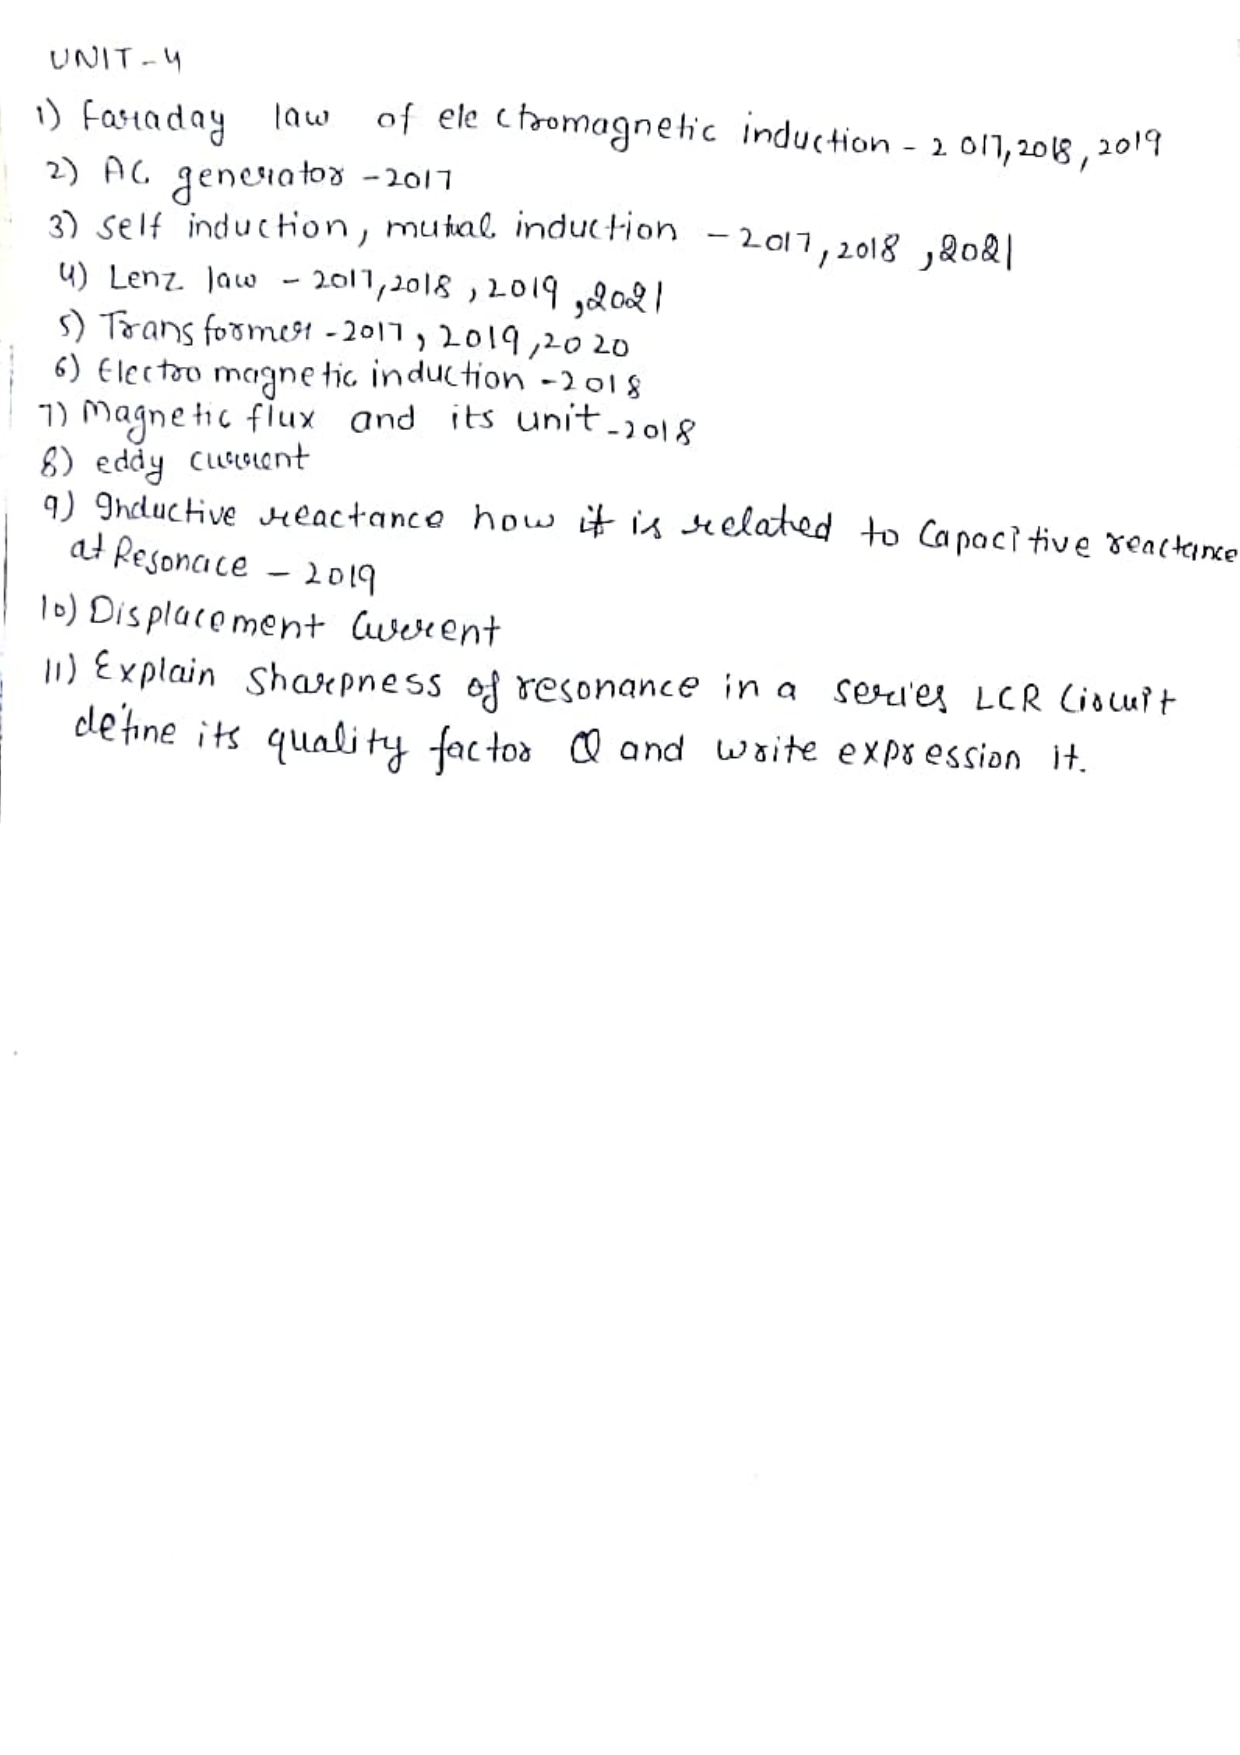 UNIT-4
1) Faraday law of electromagnetic induction - 2017, 2018, 2019
2) AC generator - 2017
3) self induction, mutual induction - 2017, 2018, 2021
4) Lenz law - 2017, 2018, 2019, 2021
5) Transformer - 2017, 2019, 2020
6) Electro magnetic induction - 2018
7) Magnetic flux and its unit - 2018
8) eddy current
9) Inductive reactance how it is related to Capacitive reactance
at Resonace - 2019
10) Displacement Current
11) Explain Sharpness of resonance in a series LCR Circuit
define its quality factor Q and write expression it.